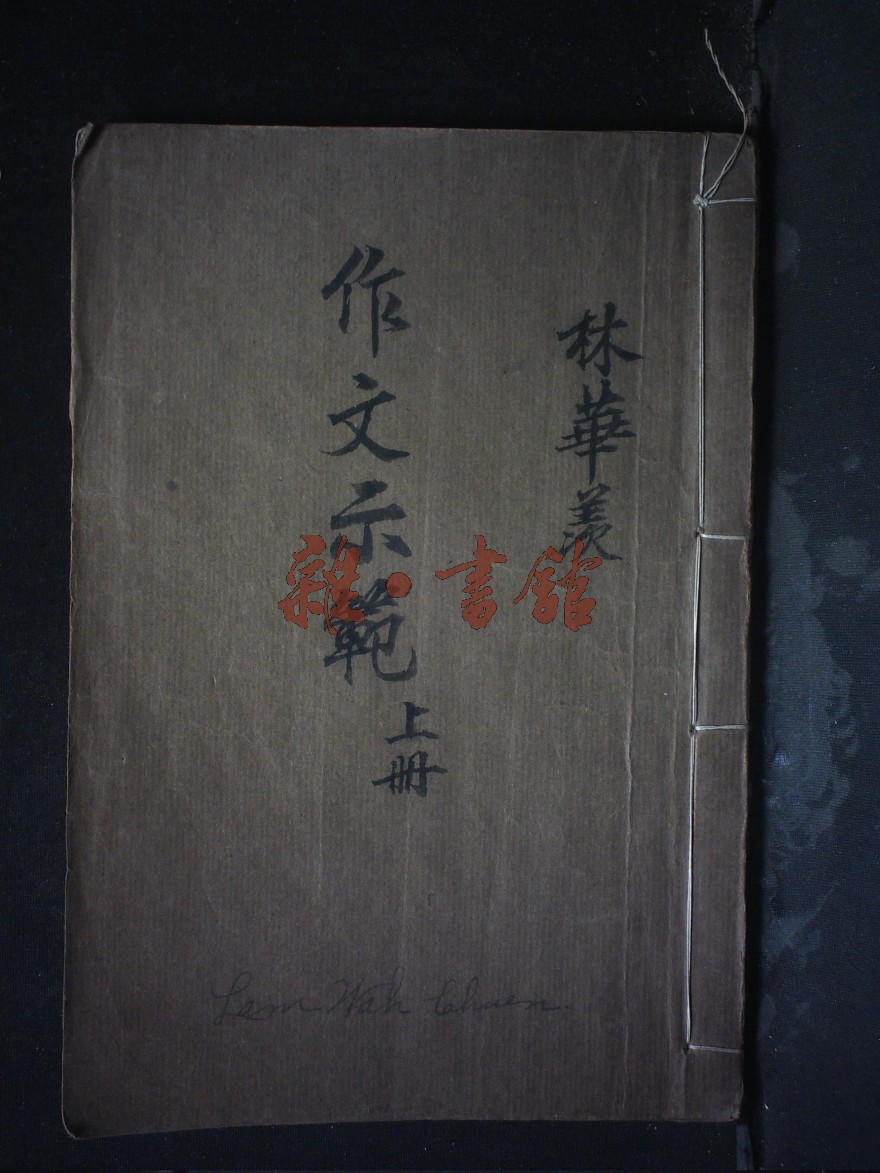 林華羨
作文示範
上冊
雜·書館
Lam Wah Chuen.